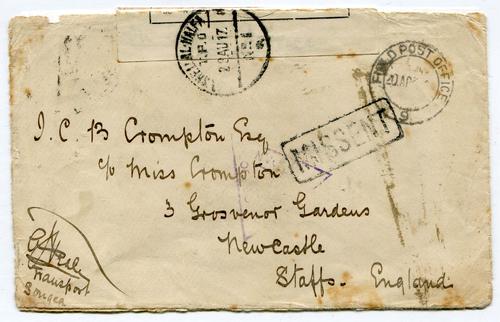 SHELLAL-HALFA
T.P.O
29 AU 17
FIELD POST OFFICE
MISSENT
J. C. B Crompton Esq
c/o Miss Crompton
3 Grosvenor Gardens
Newcastle
Staffs. England
Transport
Songea